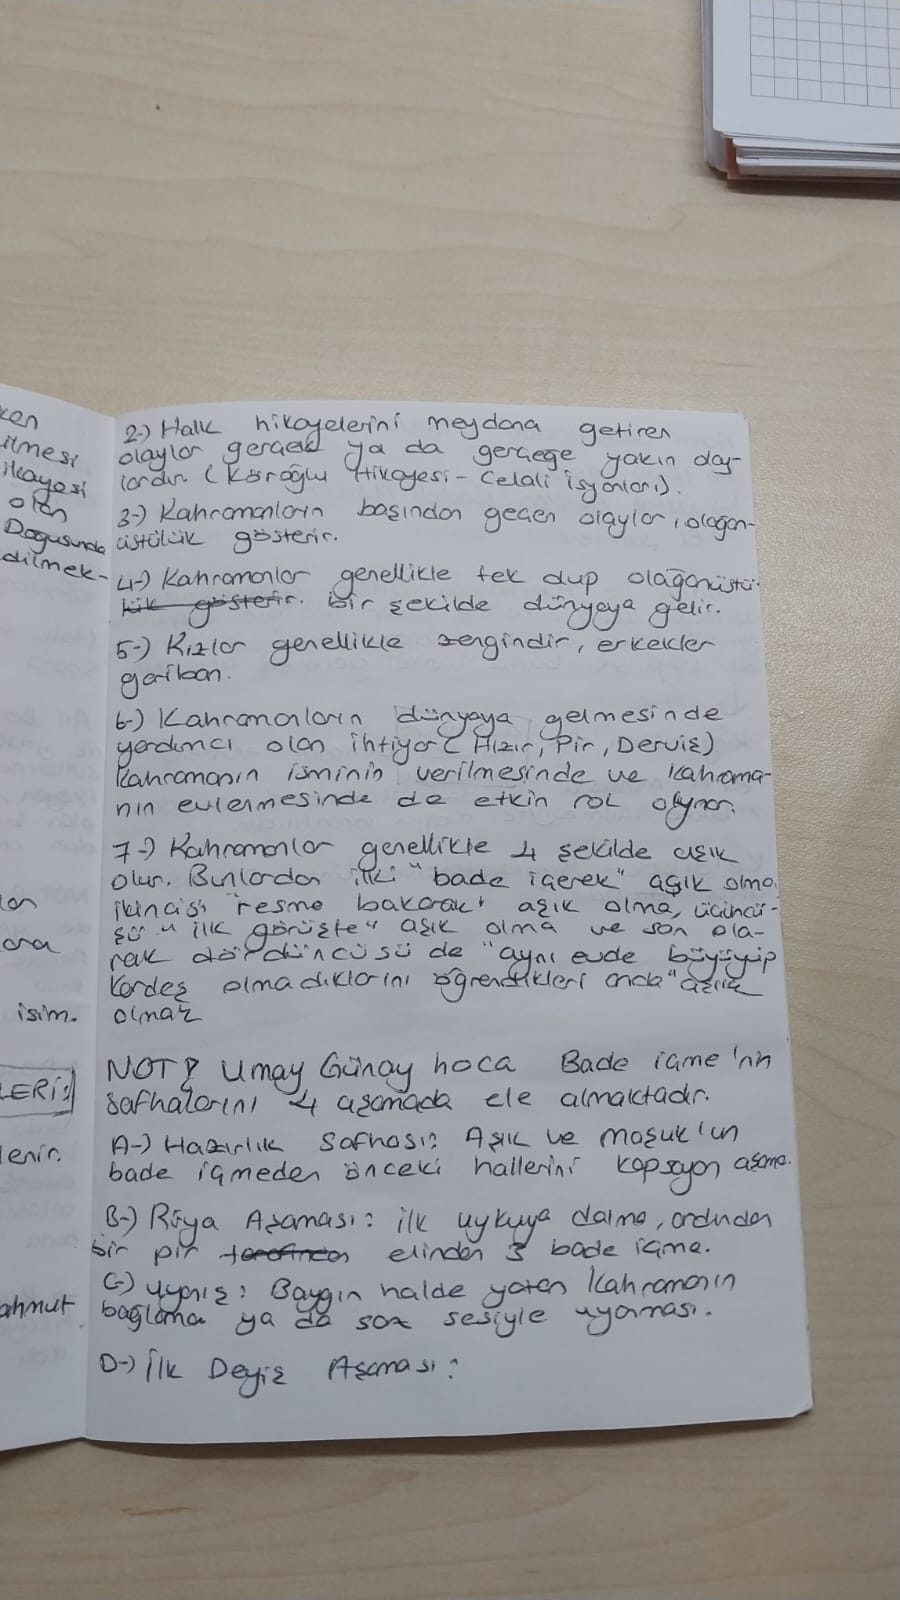 ken
ilmesi
ikayesi
olan
Doğusunda
dilmek-
ara
isim.
LERİ:
lenir.
ahmut
2-) Halk hikayelerini meydana getiren
olaylar gerçek ya da gerçeğe yakın olay-
lardır. (Köroğlu Hikayesi - Celali İsyanları).
3-) Kahramanların başından geçen olaylar, olağan-
üstülük gösterir.
4-) Kahramanlar genellikle tek olup olağanüstü
lük gösterir. bir şekilde dünyaya gelir.
5-) Kızlar genellikle zengindir, erkekler
gariban.
6-) Kahramanların dünyaya gelmesinde
yardımcı olan ihtiyar (Hızır, Pir, Derviş)
kahramanın isminin verilmesinde ve kahrama-
nın evlenmesinde de etkin rol oynar.
7-) Kahramanlar genellikle 4 şekilde aşık
olur. Bunlardan ilki "bade içerek" aşık olma,
ikincisi "resme bakarak" aşık olma, üçüncü-
sü "ilk görüşte" aşık olma ve son ola-
rak dördüncüsü de "aynı evde büyüyüp
kardeş olmadıklarını öğrendikleri anda" aşık
olmak
NOT! Umay Günay hoca Bade içme'nin
safhalarını 4 aşamada ele almaktadır.
A-) Hazırlık Safhası: Aşık ve maşuk'un
bade içmeden önceki hallerini kapsayan aşama.
B-) Rüya Aşaması: ilk uykuya dalma, ardından
bir pir tarafından elinden 3 bade içme.
C-) Uyanış: Baygın halde yatan kahramanın
bağlama ya da saz sesiyle uyanması.
D-) İlk Deyiş Aşaması: